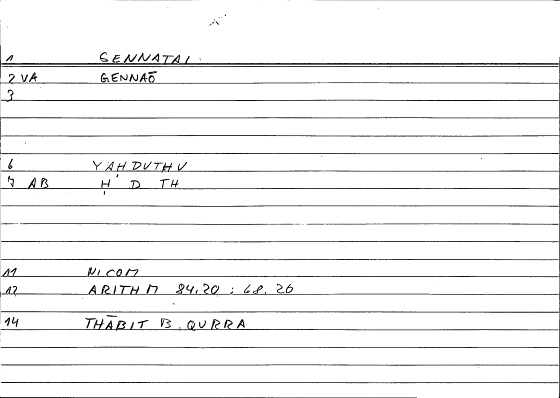 1 GENNATAI
2 VA GENNAŌ
3
6 YAHDUTHU
7 AB Ḥ D TH
11 NICOM
12 ARITHM 84.20 ; 68.20
14 THĀBIT B. QURRA